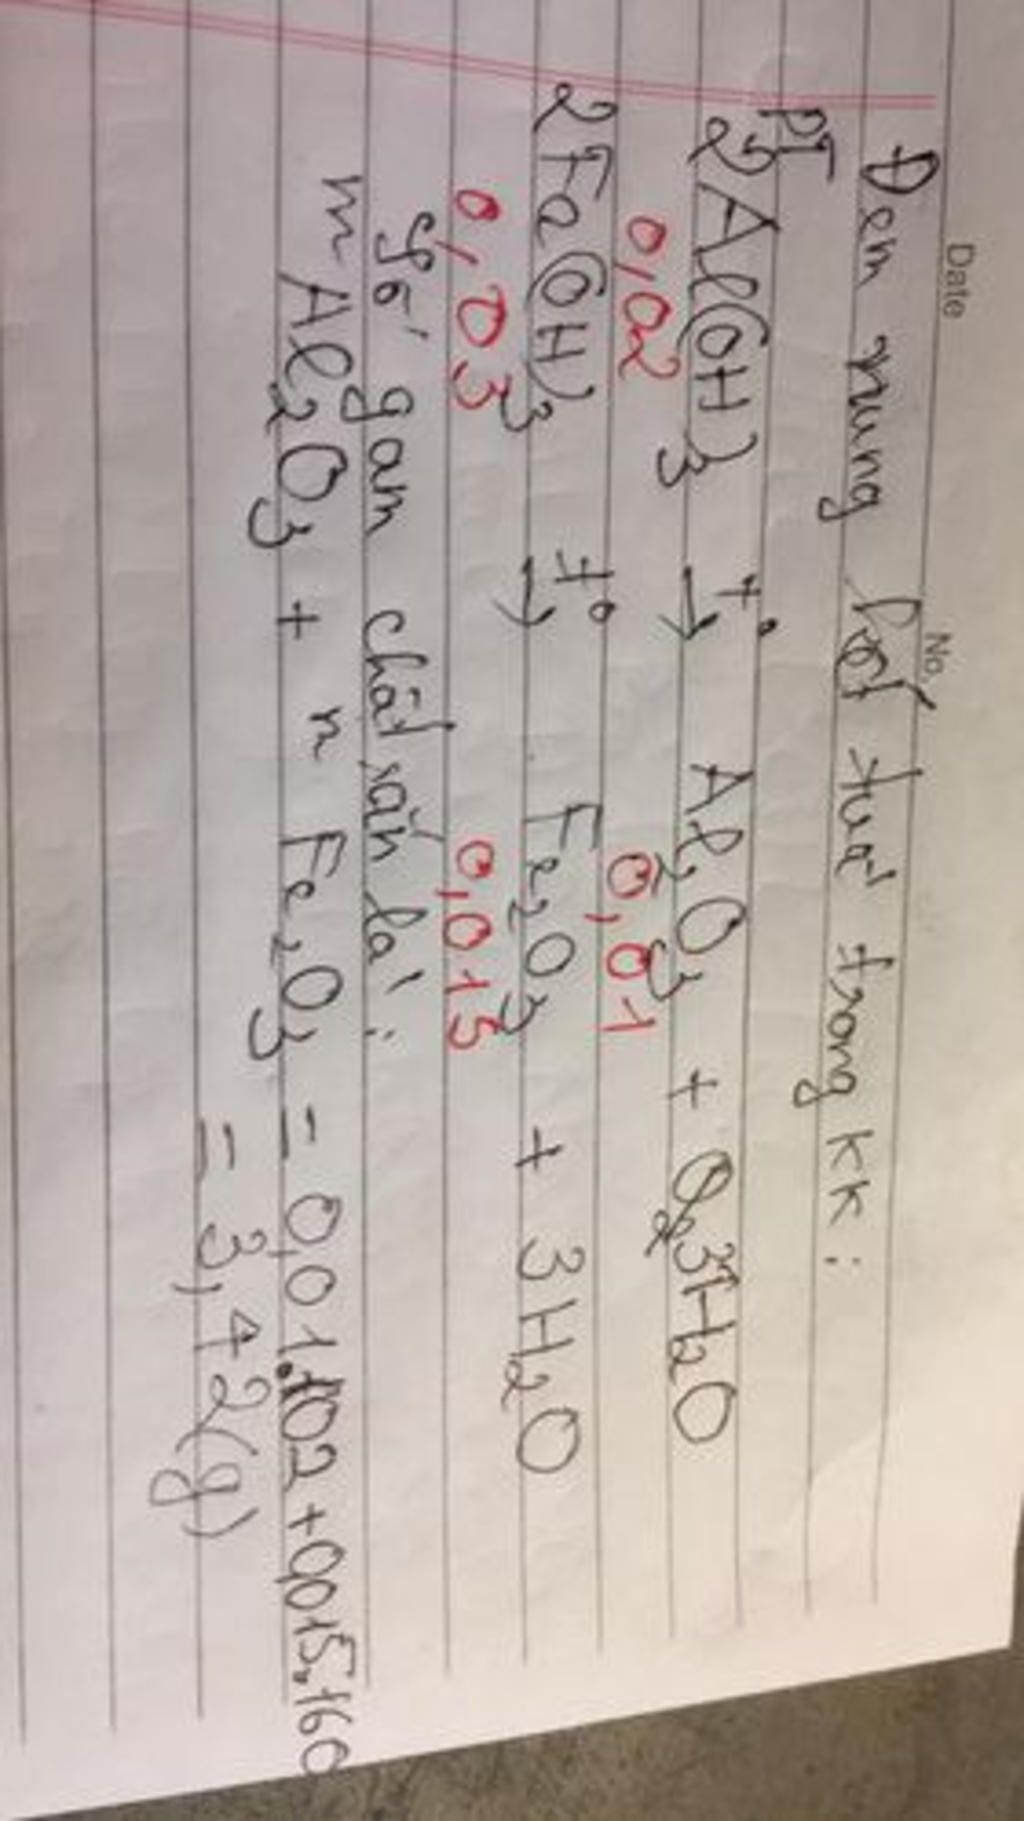 Date No.
Đem nung kết tuả trong kk :
PT
2Al(OH)3 t° → Al2O3 + 3H2O
0,02 0,01
2Fe(OH)3 t° → Fe2O3 + 3H2O
0,03 0,015
Số gam chất rắn là :
m Al2O3 + n Fe2O3 = 0,01.102 + 0,015.160
= 3,42 (g)